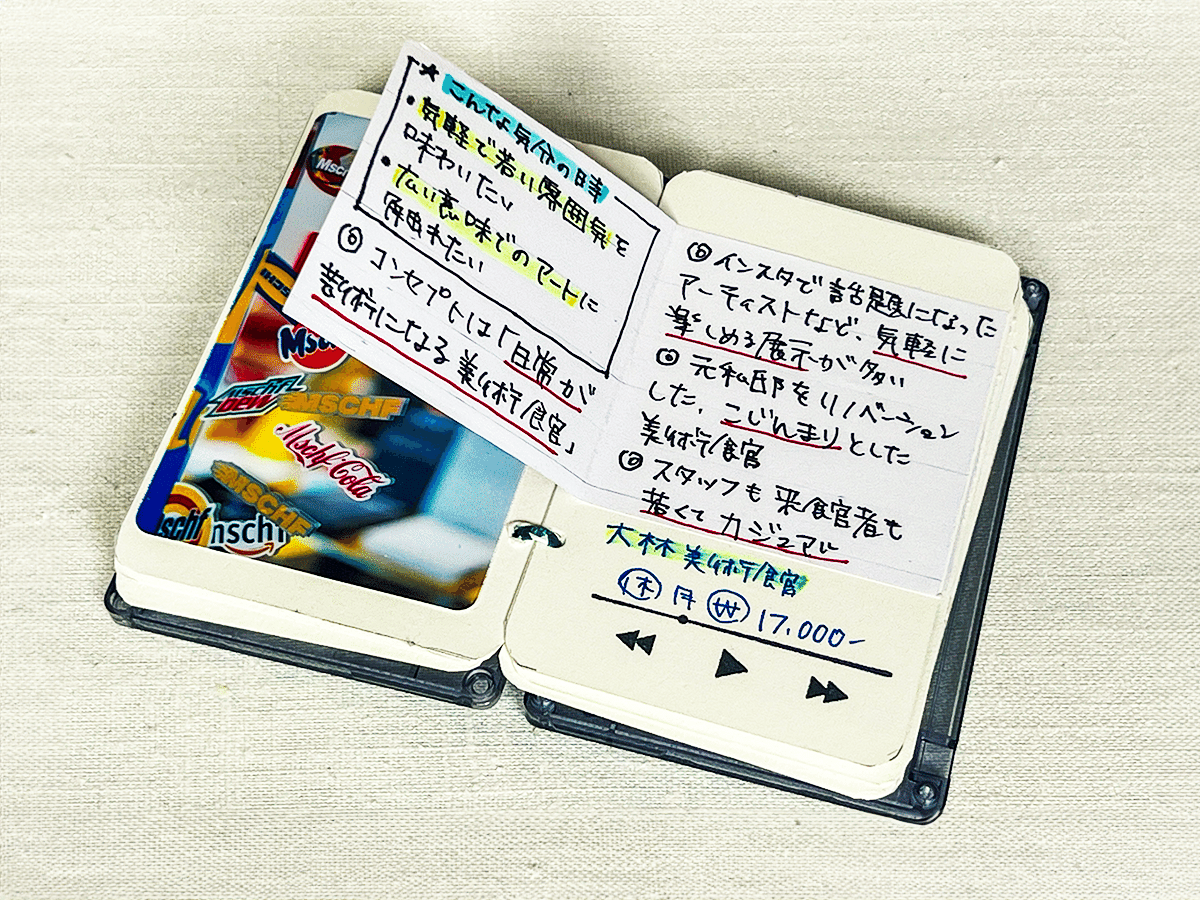 ★こんな気分の時
・気軽で若い雰囲気を
味わいたい
・広い意味でのアートに
触れたい
コンセプトは「日常が
芸術になる美術館」
インスタで話題になった
アーティストなど、気軽に
楽しめる展示が多い
元私邸をリノベーション
した、こじんまりとした
美術館
スタッフも来館者も
若くてカジュアル
大林美術館
休 月 ₩ 17,000-
MSCHF
Mschf-Cola
MSCHF
mschf